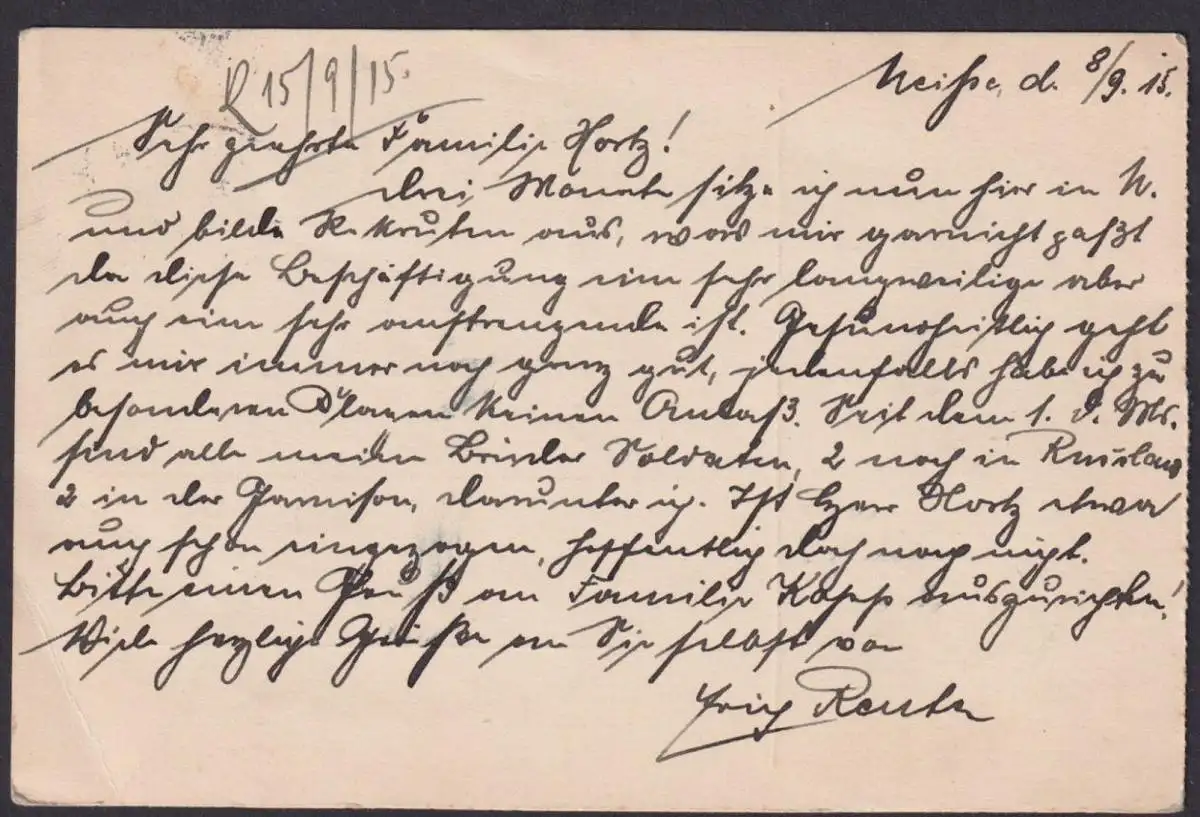 R 15/9/15.
Neisse, d. 8/9. 15.
Sehr geehrte Familie Hortz!
drei Monate sitze ich nun hier in N.
und bilde Rekruten aus, was mir garnicht paßt
da diese Beschäftigung eine sehr langweilige aber
auch eine sehr anstrengende ist. Gesundheitlich geht
es mir immer noch ganz gut, jedenfalls habe ich zu
besonderen Klagen keinen Anlaß. Seit dem 1. d. Mts.
sind alle meine Brüder Soldaten, 2 noch in Russland
2 in der Garnison, darunter ich. Ist Herr Hortz etwa
auch schon eingezogen, hoffentlich doch noch nicht.
Bitte einen Gruß an Familie auszurichten!
Viele herzliche Grüße an Sie selbst von
Erich